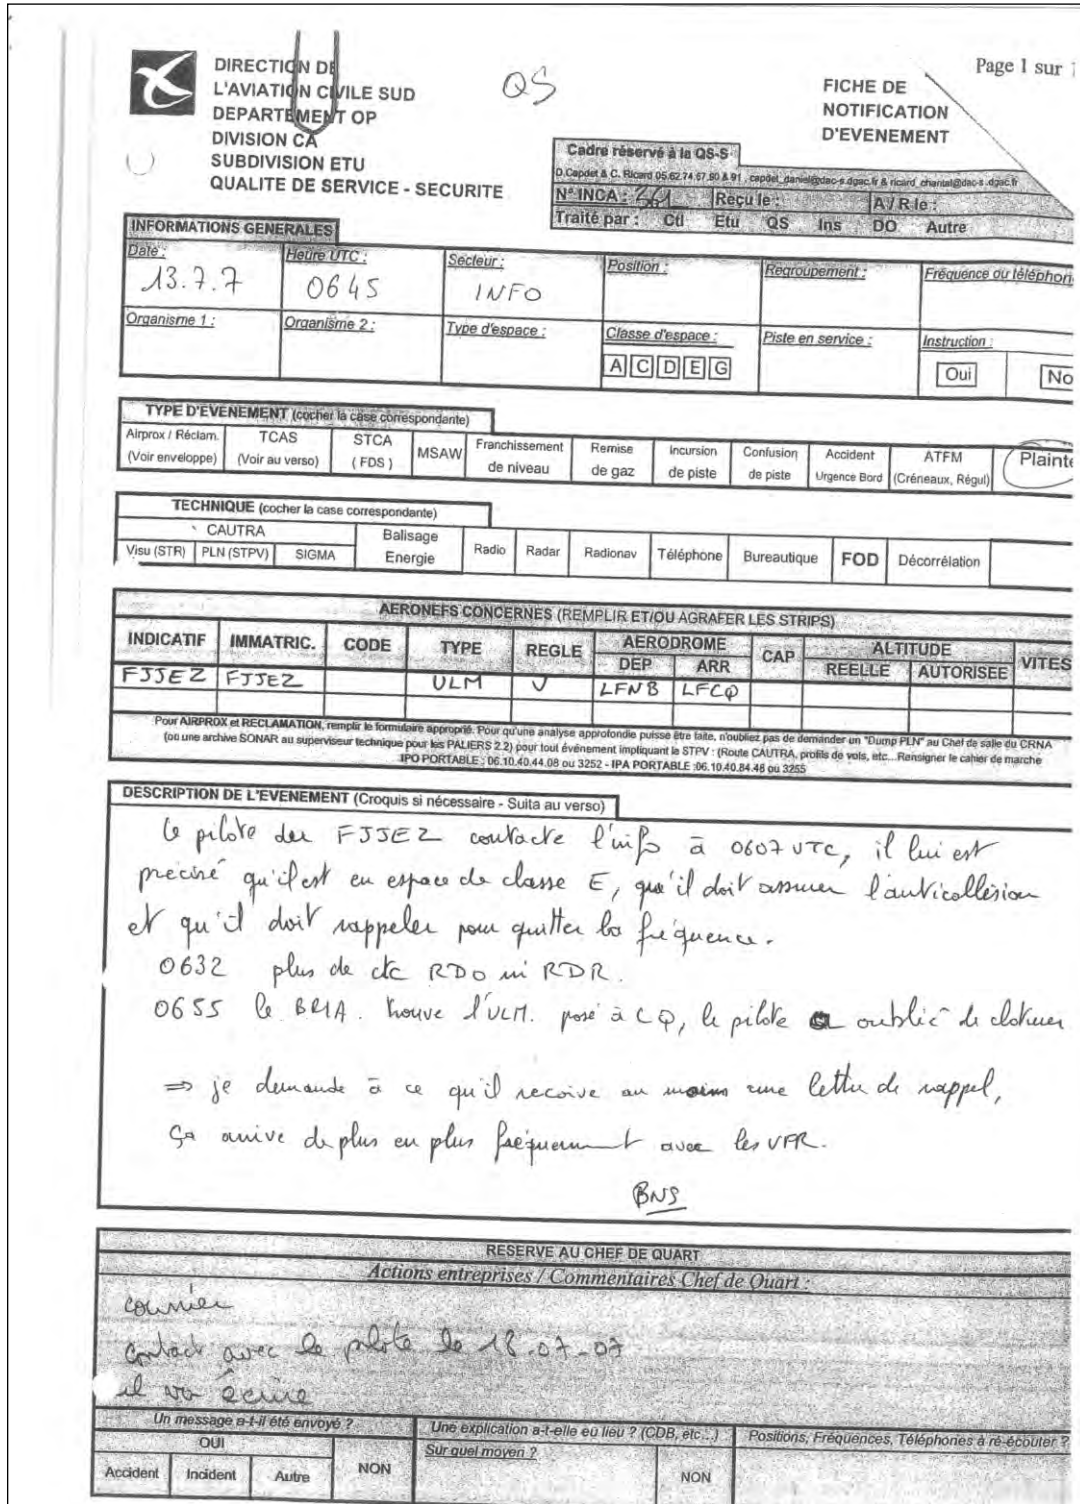 Page 1 sur 1
DIRECTION DE
L'AVIATION CIVILE SUD
DEPARTEMENT OP
DIVISION CA
SUBDIVISION ETU
QUALITE DE SERVICE - SECURITE
QS
FICHE DE
NOTIFICATION
D'EVENEMENT
Cadre réservé à la QS-S
D.Capdet & C. Ricard 05.62.74.67.90 & 91 , capdet_daniel@dac-s.dgac.fr & ricard_chantal@dac-s.dgac.fr
N° INCA : 361 Reçu le : A / R le :
Traité par : Ctl Etu QS Ins DO Autre
INFORMATIONS GENERALES
Date : Heure UTC : Secteur : Position : Regroupement : Fréquence ou téléphon
13.7.7 0645 INFO
Organisme 1 : Organisme 2 : Type d'espace : Classe d'espace : Piste en service : Instruction :
A C D E G Oui No
TYPE D'EVENEMENT (cocher la case correspondante)
Airprox / Réclam. TCAS STCA MSAW Franchissement Remise Incursion Confusion Accident ATFM Plainte
(Voir enveloppe) (Voir au verso) ( FDS ) de niveau de gaz de piste de piste Urgence Bord (Créneaux, Régul)
TECHNIQUE (cocher la case correspondante)
CAUTRA Balisage Radio Radar Radionav Téléphone Bureautique FOD Décorrélation
Visu (STR) PLN (STPV) SIGMA Energie
AERONEFS CONCERNES (REMPLIR ET/OU AGRAFER LES STRIPS)
INDICATIF IMMATRIC. CODE TYPE REGLE AERODROME CAP ALTITUDE VITES
DEP ARR REELLE AUTORISEE
FJJEZ FJJEZ ULM V LFNB LFCQ
Pour AIRPROX et RECLAMATION, remplir le formulaire approprié. Pour qu'une analyse approfondie puisse être faite, n'oubliez pas de demander un "Dump PLN" au Chef de salle du CRNA
(ou une archive SONAR au superviseur technique pour les PALIERS 2.2) pour tout événement impliquant la STPV : (Route CAUTRA, profils de vols, etc...Rensigner le cahier de marche
IPO PORTABLE : 06.10.40.44.08 ou 3252 - IPA PORTABLE :06.10.40.84.48 ou 3255
DESCRIPTION DE L'EVENEMENT (Croquis si nécessaire - Suita au verso)
Le pilote du FJJEZ contacte l'info à 0607 UTC, il lui est
précisé qu'il est en espace de classe E, qu'il doit assurer l'anticollision
et qu'il doit rappeler pour quitter la fréquence.
0632 plus de ctc RDO ni RDR.
0655 le BRIA. trouve l'ULM. posé à CQ, le pilote a oublié de cloturer
⇒ je demande à ce qu'il recoive au moins une lettre de rappel,
ça arrive de plus en plus fréquemment avec les VFR.
BNS
RESERVE AU CHEF DE QUART
Actions entreprises / Commentaires Chef de Quart :
courrier
contact avec le pilote le 18-07-07
il va écrire
Un message a-t-il été envoyé ? Une explication a-t-elle eu lieu ? (CDB, etc...) Positions, Fréquences, Téléphones à ré-écouter ?
OUI NON Sur quel moyen ? NON
Accident Incident Autre